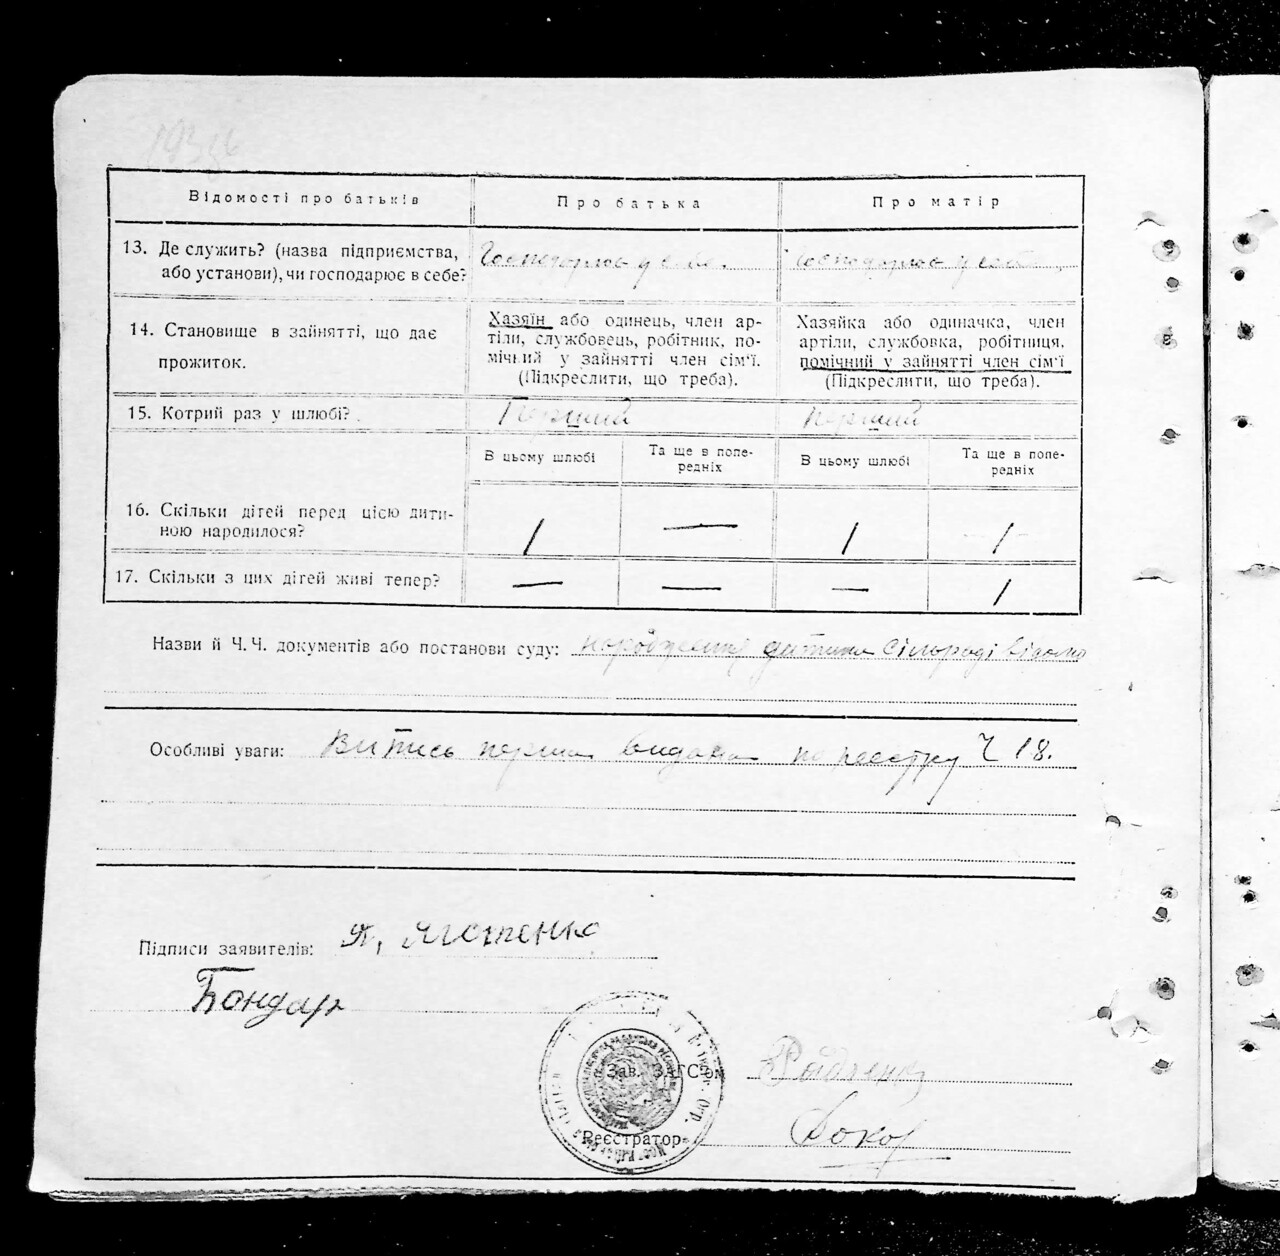 Відомості про батьків
Про батька
Про матір
13. Де служить? (назва підприємства,
або установи), чи господарює в себе?
Господарює у себе.
Господарює у себе
14. Становище в зайнятті, що дає
прожиток.
Хазяїн або одинець, член ар-
тіли, службовець, робітник, по-
мічний у зайнятті член сім'ї.
(Підкреслити, що треба).
Хазяйка або одиначка, член
артіли, службовка, робітниця,
помічний у зайнятті член сім'ї
(Підкреслити, що треба).
15. Котрий раз у шлюбі?
Перший
Перший
В цьому шлюбі
Та ще в попе-
редніх
В цьому шлюбі
Та ще в попе-
редніх
16. Скільки дітей перед цією дити-
ною народилося?
1 — 1 1
17. Скільки з цих дітей живі тепер?
— — — 1
Назви й Ч.Ч. документів або постанови суду: народження дитини сільраді відомо
Особливі уваги: Витись перша видана по реєстру Ч 18.
Підписи заявителів:
Бондар
Зав. ЗАГС'ом
Реєстратор